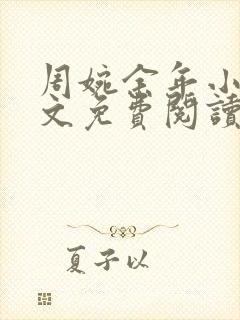 周婉金年小
文免費閱讀
夏子以